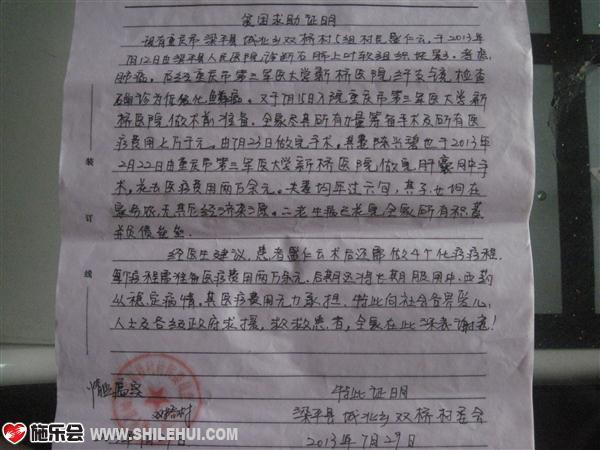 贫困求助证明
现有重庆市梁平县城北乡双桥村5组村民 仁云,于2013年
月12日由梁平县人民医院诊断右肺上叶软组织块影,考虑
肺癌。后经重庆市第三军医大学新桥医院纤支镜检查
确诊为低分化鳞癌。又于7月15日入院重庆市第三军医大学新
桥医院做术前准备,全家尽其所有力量筹备手术及所有医
疗费用上万千元。由7月23日做完手术。其妻陈兴碧也于2013年
2月22日由重庆市第三军医大学新桥医院做完肝囊肿手
术,花去医疗费用两万余元。夫妻均年过六旬,其子女均在
家务农无其他经济来源。二老生病已花完全家所有积蓄
并负债
经医生建议,患者 仁云术后还需做4个化疗疗程,
每疗程需准备医疗费用两万余元。后期还将长期服用中、西药
以稳定病情,其医疗费用无力承担。特此向社会各界爱心
人士及各级政府求援,救救患者,全家在此深表谢意!
情况属实
特此证明
双桥村
梁平县城北乡双桥村委会
2013年7月29日
装
订
线
施乐会 WWW.SHILEHUI.COM